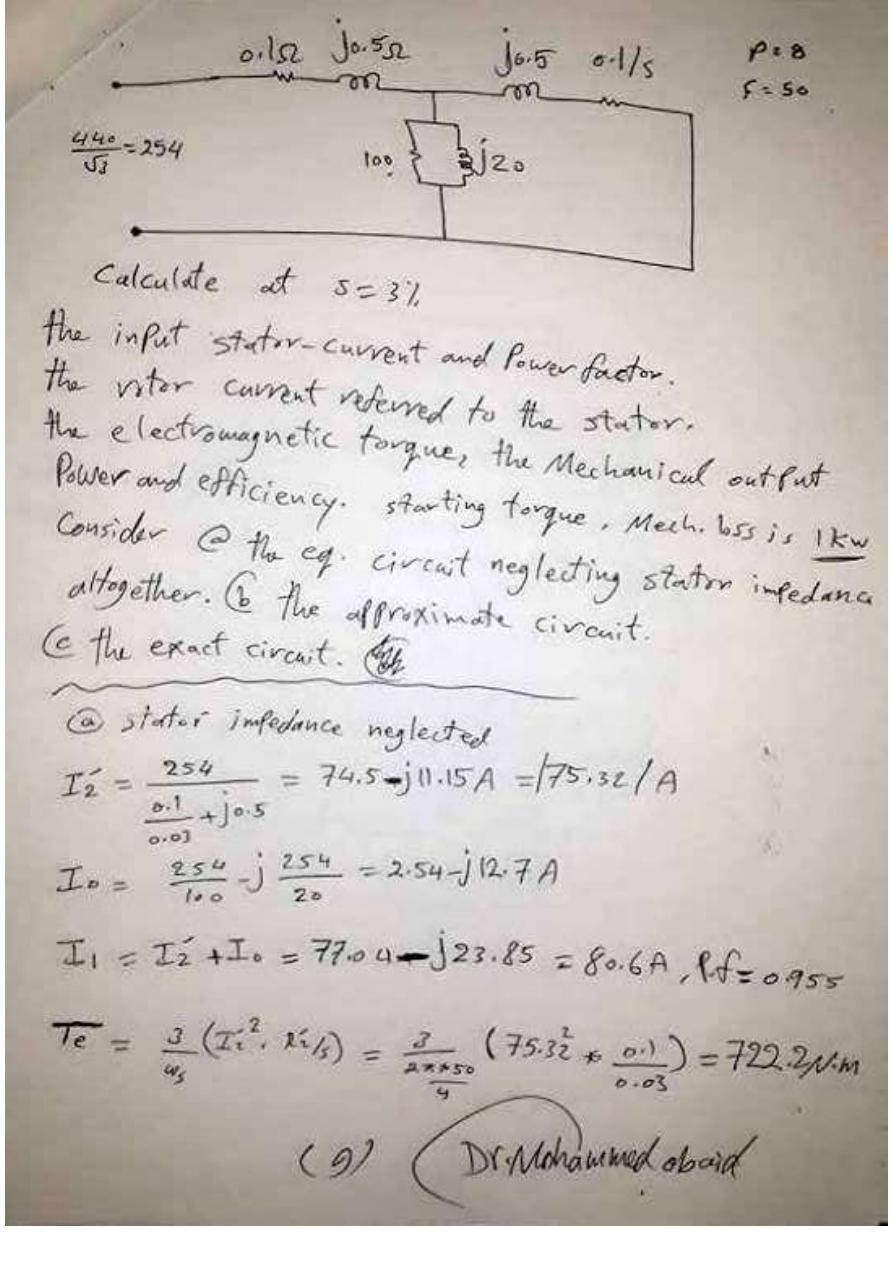 0.1Ω j0.5Ω j0.5 0.1/s P=8
f=50
440/√3 = 254
100 j20
Calculate at s=3%
the input stator-current and Power factor.
the rotor current referred to the stator.
the electromagnetic torque, the Mechanical output
Power and efficiency. starting torque, Mech. loss is 1kw
Consider ⓐ the eq. circuit neglecting stator impedance
altogether. ⓑ the approximate circuit.
ⓒ the exact circuit.
ⓐ stator impedance neglected
I2' = 254 / (0.1/0.03 + j0.5) = 74.5 - j11.15 A = |75.32| A
I0 = 254/100 - j 254/20 = 2.54 - j12.7 A
I1 = I2' + I0 = 77.04 - j23.85 = 80.6A, Pf = 0.955
Te = 3/ωs (I2'². R2'/s) = 3/(2π*50/4) (75.32² * 0.1/0.03) = 722.2 N.m
(9) Dr.Mohammed obaid